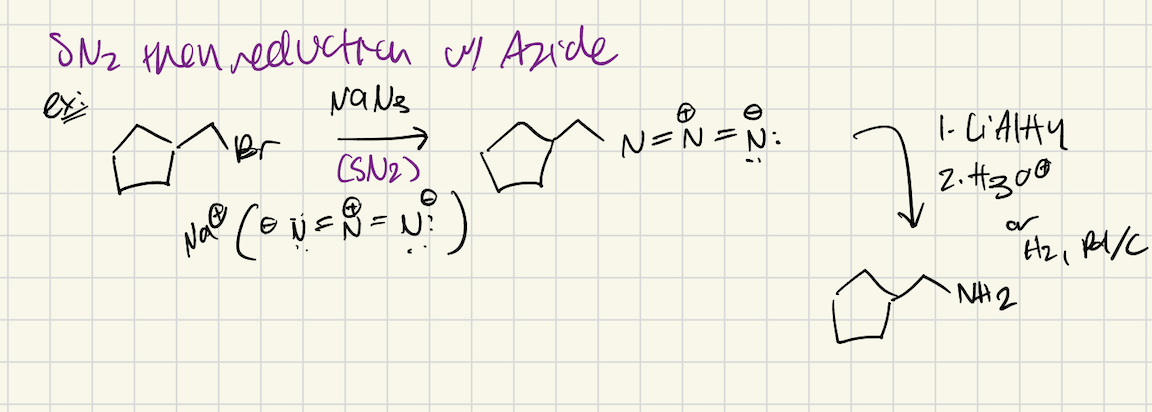 SN2 then reduction w/ Azide
ex:
Br
NaN3
(SN2)
Na⊕ (⊖ N̤̈ = N⊕ = N̤:⊖)
N = N⊕ = N̤:⊖
1. LiAlH4
2. H3O⊕
or
H2, Pd/C
NH2